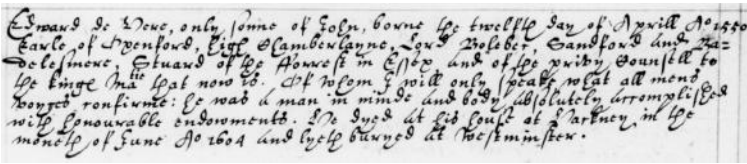 Edward de Vere, only sonne of John, borne the twelfth day of Aprill Ao 1550
Earle of Oxenford, high Chamberlayne, Lord Bolebec, Sandford and Ba-
delesmere, Steward of the Forrest in Essex and of the privy Counsell to
the kinge Matie that now is. Of whom I will only speake what all mens
voyces confirme: he was a man in minde and body absolutely accomplished
with honourable endowments. He dyed at his house at Hackney in the
moneth of June Ao 1604 and lyeth buryed at Westminster.